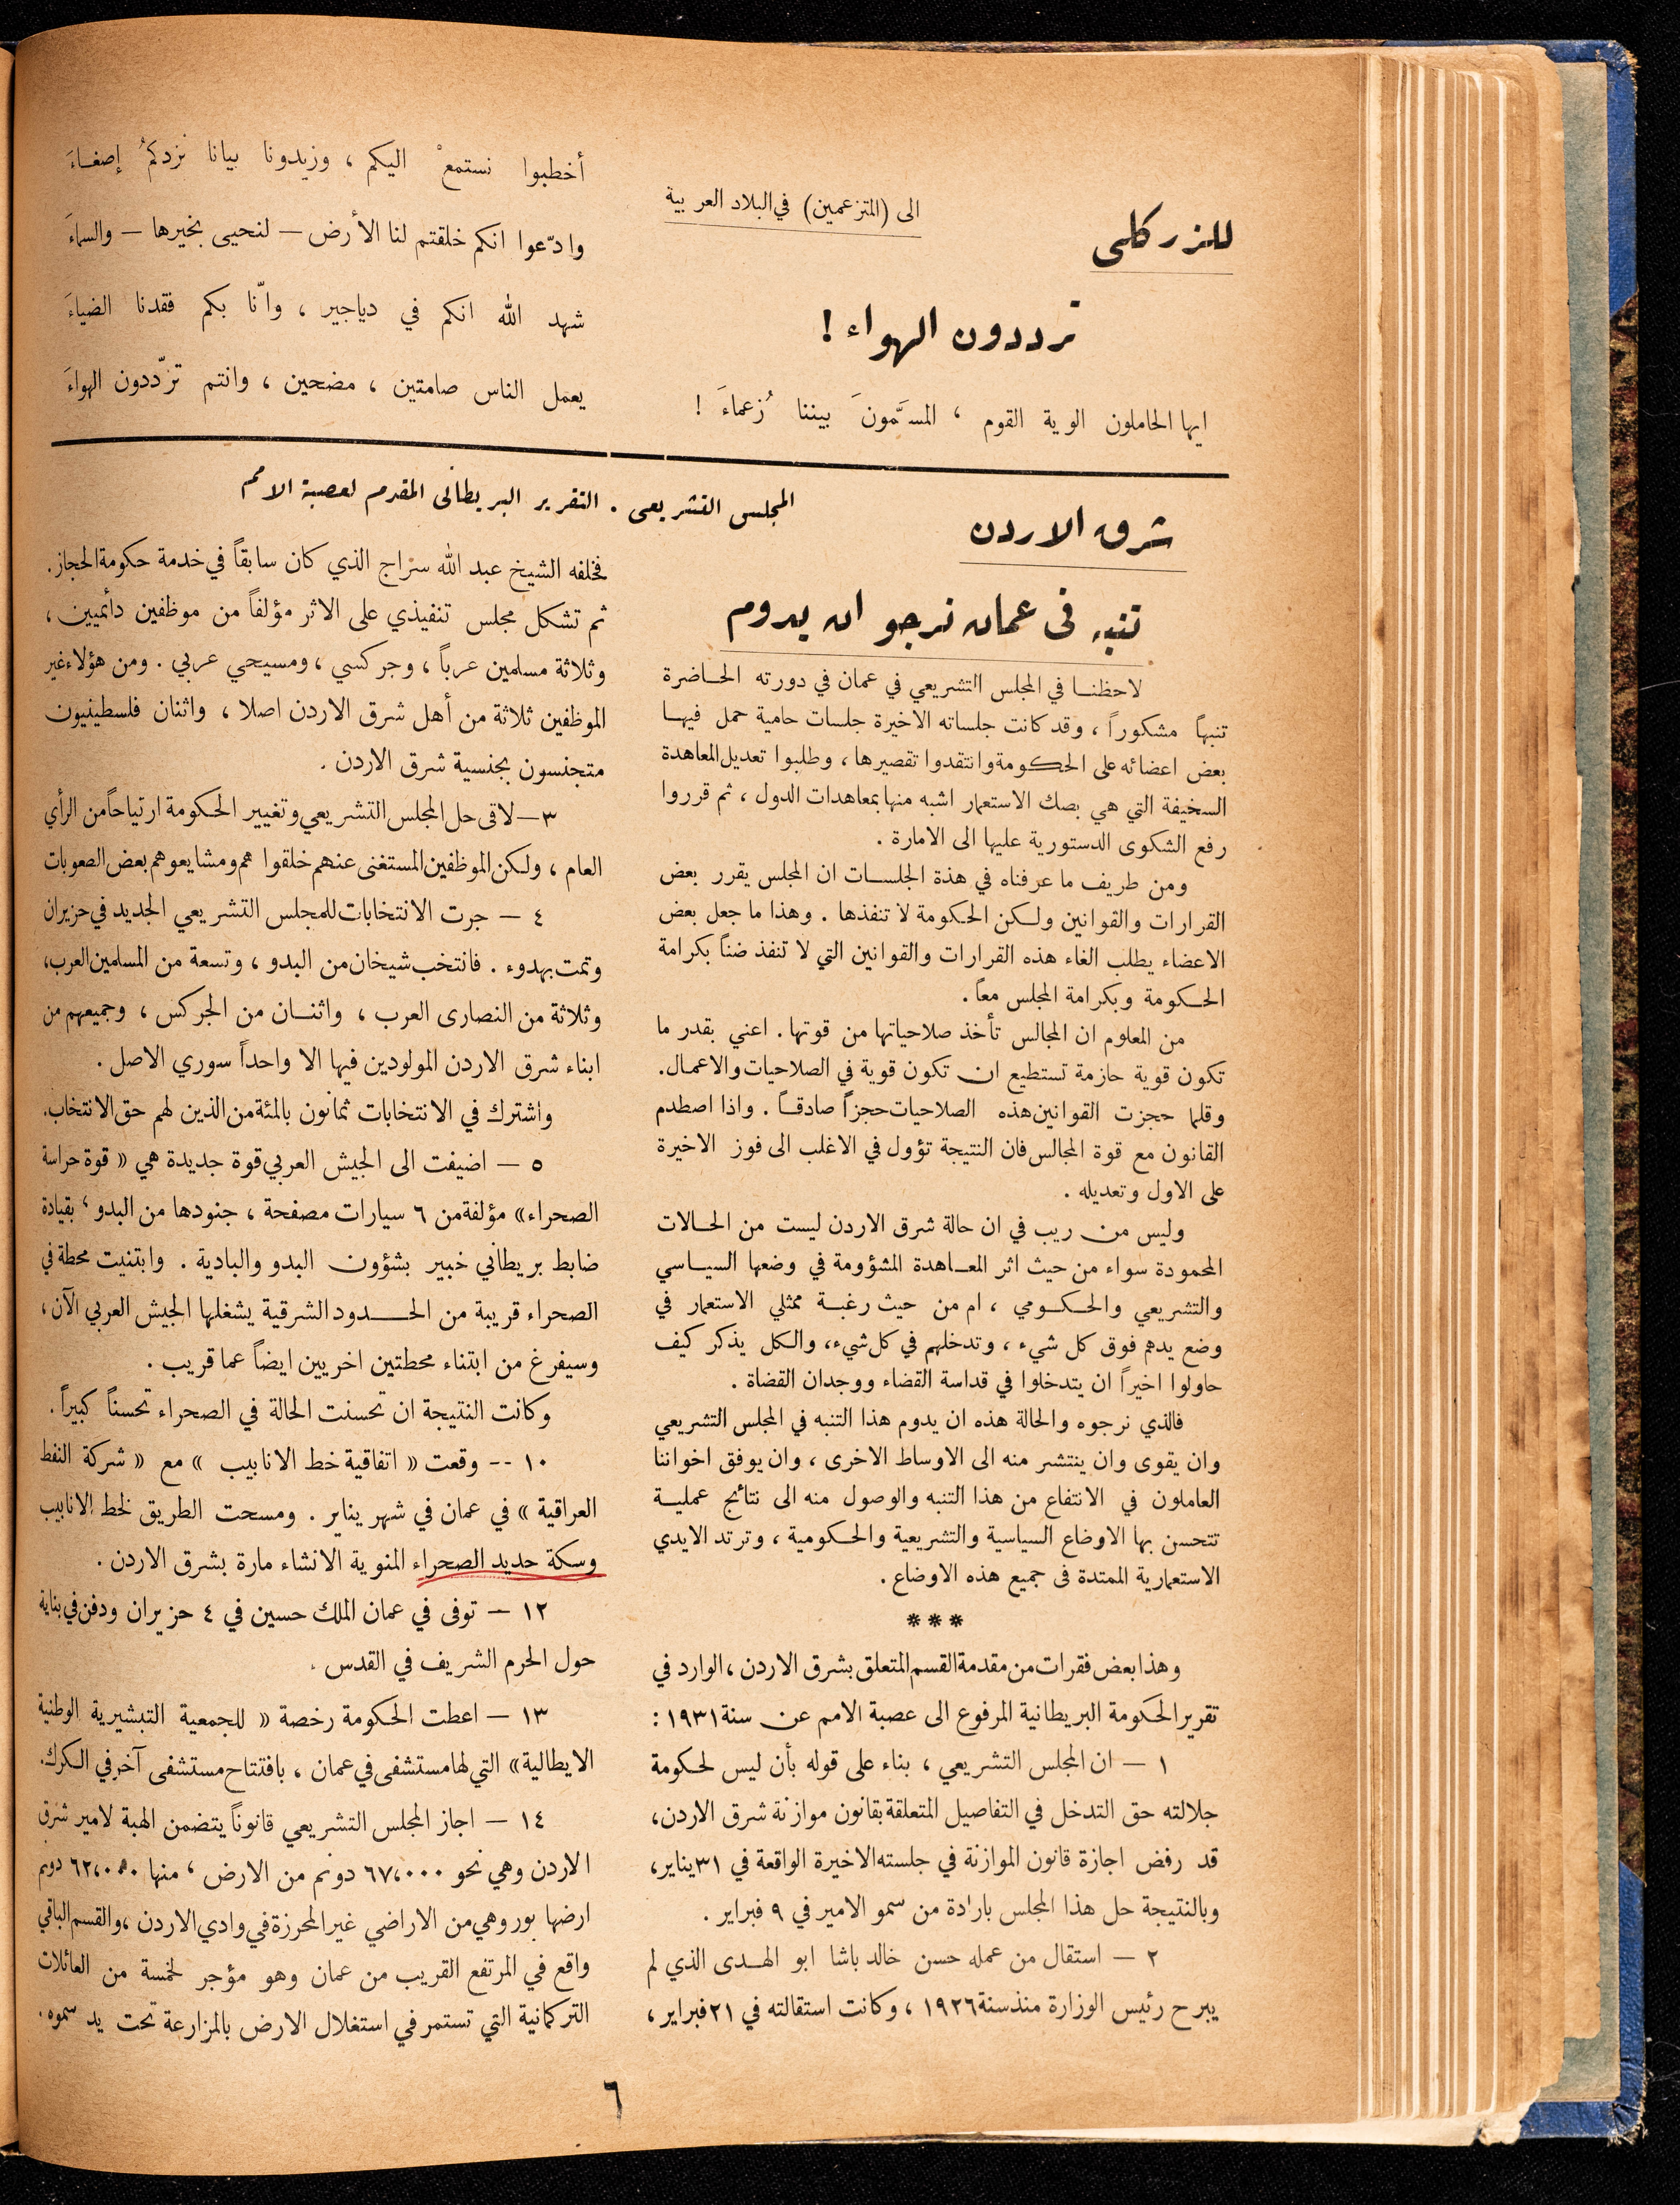 للزركلي
الى (المتزعمين) في البلاد العربية
ترددون الهواء !
ايها الحاملون الوية القوم ، المسَمَّونَ بيننا زُعماءَ !
أخطبوا نستمعْ اليكم ، وزيدونا بيانا نزدكمُ إصغاءَ
وادّعوا انكم خلقتم لنا الأرض – لنحيى بخيرها – والسماءَ
شهد الله انكم في دياجير ، وانّا بكم فقدنا الضياءَ
يعمل الناس صامتين ، مضحين ، وانتم تردّدون الهواءَ
شرق الاردن
المجلس التشريعي . التقرير البريطاني المقدم لعصبة الامم
تنبه في عمان نرجو ان يدوم
لاحظنا في المجلس التشريعي في عمان في دورته الحاضرة
تنبهاً مشكوراً ، وقد كانت جلساته الاخيرة جلسات حامية حمل فيها
بعض اعضائه على الحكومة وانتقدوا تقصيرها ، وطلبوا تعديل المعاهدة
السخيفة التي هي بصك الاستعمار اشبه منها بمعاهدات الدول ، ثم قرروا
رفع الشكوى الدستورية عليها الى الامارة .
ومن طريف ما عرفناه في هذة الجلسات ان المجلس يقرر بعض
القرارات والقوانين ولكن الحكومة لا تنفذها . وهذا ما جعل بعض
الاعضاء يطلب الغاء هذه القرارات والقوانين التي لا تنفذ ضناً بكرامة
الحكومة وبكرامة المجلس معاً .
من المعلوم ان المجالس تأخذ صلاحياتها من قوتها . اعني بقدر ما
تكون قوية حازمة تستطيع ان تكون قوية في الصلاحيات والاعمال .
وقلما حجزت القوانين هذه الصلاحيات حجزاً صادقاً . واذا اصطدم
القانون مع قوة المجالس فان النتيجة تؤول في الاغلب الى فوز الاخيرة
على الاول وتعديله .
وليس من ريب في ان حالة شرق الاردن ليست من الحالات
المحمودة سواء من حيث اثر المعاهدة المشؤومة في وضعها السياسي
والتشريعي والحكومي ، ام من حيث رغبة ممثلي الاستعمار في
وضع يدهم فوق كل شيء ، وتدخلهم في كل شيء ، والكل يذكر كيف
حاولوا اخيراً ان يتدخلوا في قداسة القضاء ووجدان القضاة .
فالذي نرجوه والحالة هذه ان يدوم هذا التنبه في المجلس التشريعي
وان يقوى وان ينتشر منه الى الاوساط الاخرى ، وان يوفق اخواننا
العاملون في الانتفاع من هذا التنبه والوصول منه الى نتائج عملية
تتحسن بها الاوضاع السياسية والتشريعية والحكومية ، وترتد الايدي
الاستعمارية الممتدة في جميع هذه الاوضاع .
***
وهذا بعض فقرات من مقدمة القسم المتعلق بشرق الاردن ، الوارد في
تقرير الحكومة البريطانية المرفوع الى عصبة الامم عن سنة ١٩٣١ :
١ – ان المجلس التشريعي ، بناء على قوله بأن ليس لحكومة
جلالته حق التدخل في التفاصيل المتعلقة بقانون موازنة شرق الاردن ،
قد رفض اجازة قانون الموازنة في جلسته الاخيرة الواقعة في ٣١ يناير ،
وبالنتيجة حل هذا المجلس بارادة من سمو الامير في ٩ فبراير .
٢ – استقال من عمله حسن خالد باشا ابو الهدى الذي لم
يبرح رئيس الوزارة منذ سنة ١٩٢٦ ، وكانت استقالته في ٢١ فبراير ،
فخلفه الشيخ عبد الله سراج الذي كان سابقاً في خدمة حكومة الحجاز .
ثم تشكل مجلس تنفيذي على الاثر مؤلفاً من موظفين دائميين ،
وثلاثة مسلمين عرباً ، وجركسي ، ومسيحي عربي . ومن هؤلاء غير
الموظفين ثلاثة من أهل شرق الاردن اصلا ، واثنان فلسطينيون
متجنسون بجنسية شرق الاردن .
٣ – لاقى حل المجلس التشريعي وتغيير الحكومة ارتياحاً من الرأي
العام ، ولكن الموظفين المستغنى عنهم خلقوا هم ومشايعوهم بعض الصعوبات
٤ – جرت الانتخابات للمجلس التشريعي الجديد في حزيران
وتمت بهدوء . فانتخب شيخان من البدو ، وتسعة من المسلمين العرب ،
وثلاثة من النصارى العرب ، واثنان من الجركس ، وجميعهم من
ابناء شرق الاردن المولودين فيها الا واحداً سوري الاصل .
واشترك في الانتخابات ثمانون بالمئة من الذين لهم حق الانتخاب .
٥ – اضيفت الى الجيش العربي قوة جديدة هي « قوة حراسة
الصحراء » مؤلفة من ٦ سيارات مصفحة ، جنودها من البدو ، بقيادة
ضابط بريطاني خبير بشؤون البدو والبادية . وابتنيت محطة في
الصحراء قريبة من الحدود الشرقية يشغلها الجيش العربي الآن ،
وسيفرغ من ابتناء محطتين اخريين ايضاً عما قريب .
وكانت النتيجة ان تحسنت الحالة في الصحراء تحسناً كبيراً .
١٠ -- وقعت « اتفاقية خط الانابيب » مع « شركة النفط
العراقية » في عمان في شهر يناير . ومسحت الطريق لخط الانابيب
وسكة حديد الصحراء المنوية الانشاء مارة بشرق الاردن .
١٢ – توفى في عمان الملك حسين في ٤ حزيران ودفن في بناية
حول الحرم الشريف في القدس .
١٣ – اعطت الحكومة رخصة « للجمعية التبشيرية الوطنية
الايطالية » التي لها مستشفى في عمان ، بافتتاح مستشفى آخر في الكرك .
١٤ – اجاز المجلس التشريعي قانوناً يتضمن الهبة لامير شرق
الاردن وهي نحو ٦٧،٠٠٠ دونم من الارض ، منها ٦٢،٠٠٠ دونم
ارضها بور وهي من الاراضي غير المحرزة في وادي الاردن ، والقسم الباقي
واقع في المرتفع القريب من عمان وهو مؤجر لخمسة من العائلات
التركمانية التي تستمر في استغلال الارض بالمزارعة تحت يد سموه .
٦